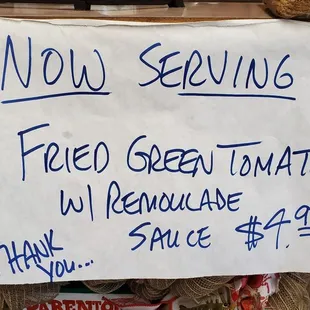 NOW SERVING
FRIED GREEN TOMAT
W/ REMOULADE
SAUCE $4.9
THANK
YOU...
PARENTO